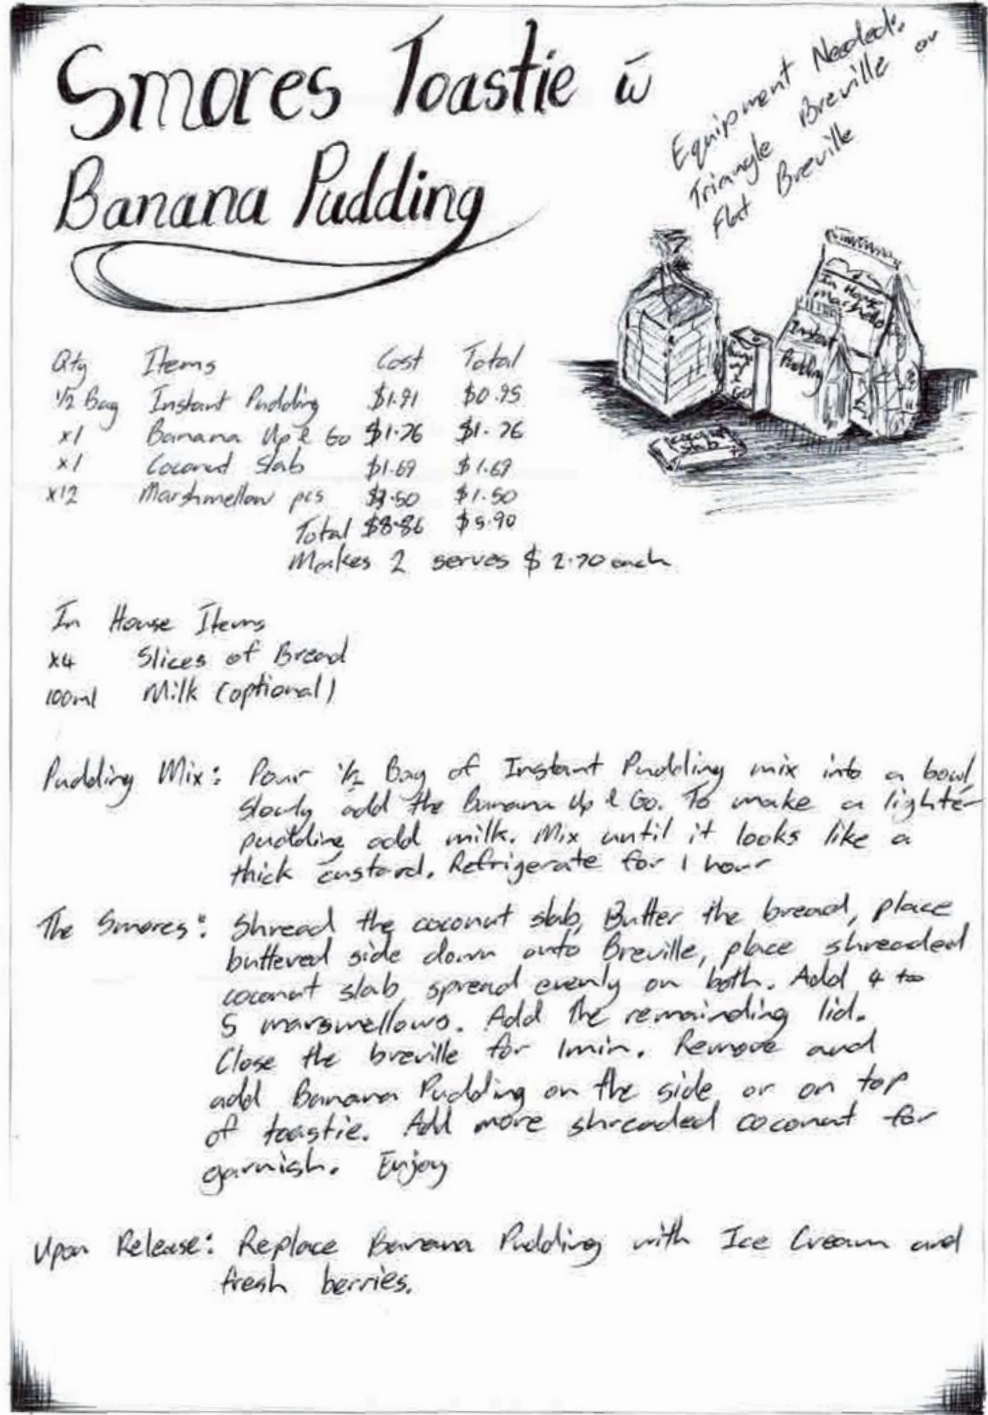 Smores Toastie w̄
Banana Pudding
Equipment Needed:
Triangle Breville or
Flat Breville
In House
Instant
Pudding
Qty Items Cost Total
1/2 Bag Instant Pudding $1.91 $0.95
x1 Banana Up & Go $1.76 $1.76
x1 Coconut Slab $1.69 $1.69
x12 Marshmellow pcs $3.50 $1.50
Total $8.86 $5.90
Makes 2 serves $ 2.70 each
In House Items
x4 Slices of Bread
100ml Milk (optional)
Pudding Mix: Pour 1/2 Bag of Instant Pudding mix into a bowl,
slowly add the Banana Up & Go. To make a lighter
pudding add milk. Mix until it looks like a
thick custard. Refrigerate for 1 hour
The Smores: Shread the coconut slab, Butter the bread, place
buttered side down onto Breville, place shreaded
coconut slab, spread evenly on both. Add 4 to
5 marsmellows. Add the remainding lid.
Close the breville for 1min. Remove and
add Banana Pudding on the side, or on top
of toastie. Add more shreaded coconut for
garnish. Enjoy
Upon Release: Replace Banana Pudding with Ice Cream and
fresh berries.